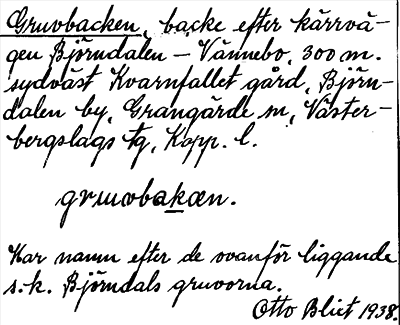 Gruvbacken, backe efter kärrvä-
gen Björndalen – Vännebo, 300 m.
sydväst Kvarnfallet gård, Björn-
dalen by, Grangärde sn, Väster-
bergslags tg, Kopp. l.
gruvbakæn.
Har namn efter de ovanför liggande
s.k. Björndals gruvorna.
Otto Blixt 1938.